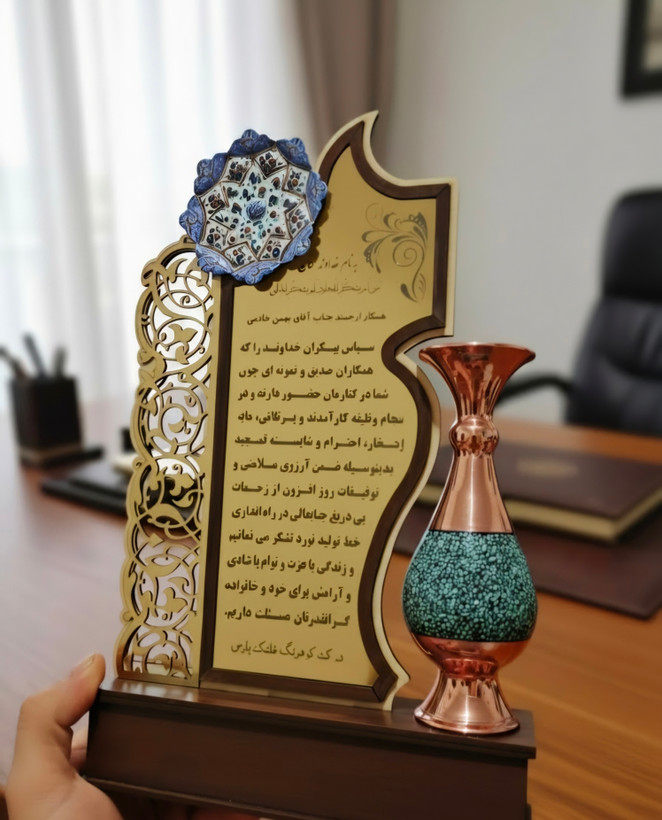 به نام خداوند
همکار ارجمند جناب آقای بهمن خادمی
سپاس بیکران خداوند را که
همکاران صدیق و نمونه ای چون
شما در کنارمان حضور دارند و در
انجام وظیفه کارآمدند و پرتلاش،
احترام و شایسته تمجید
بدینوسیله ضمن آرزوی سلامتی و
توفیقات روز افزون از زحمات
بی دریغ جنابعالی در راه اندازی
خط تولید نورد تشکر می نمائیم
و زندگی با عزت و توام با شادی
و آرامش برای خود و خانواده
گرانقدرتان مسئلت داریم.